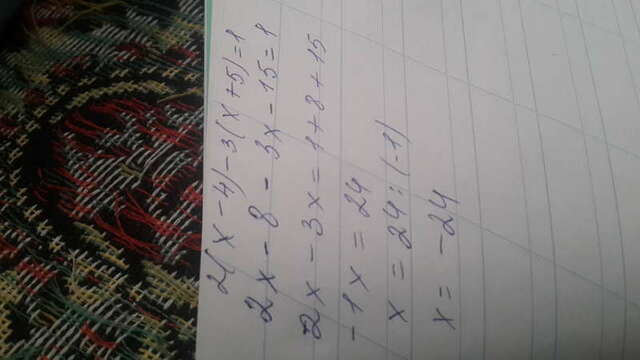 2(x-4)-3(x+5)=1
2x-8-3x-15=1
2x-3x=1+8+15
-1x=24
x=24:(-1)
x=-24